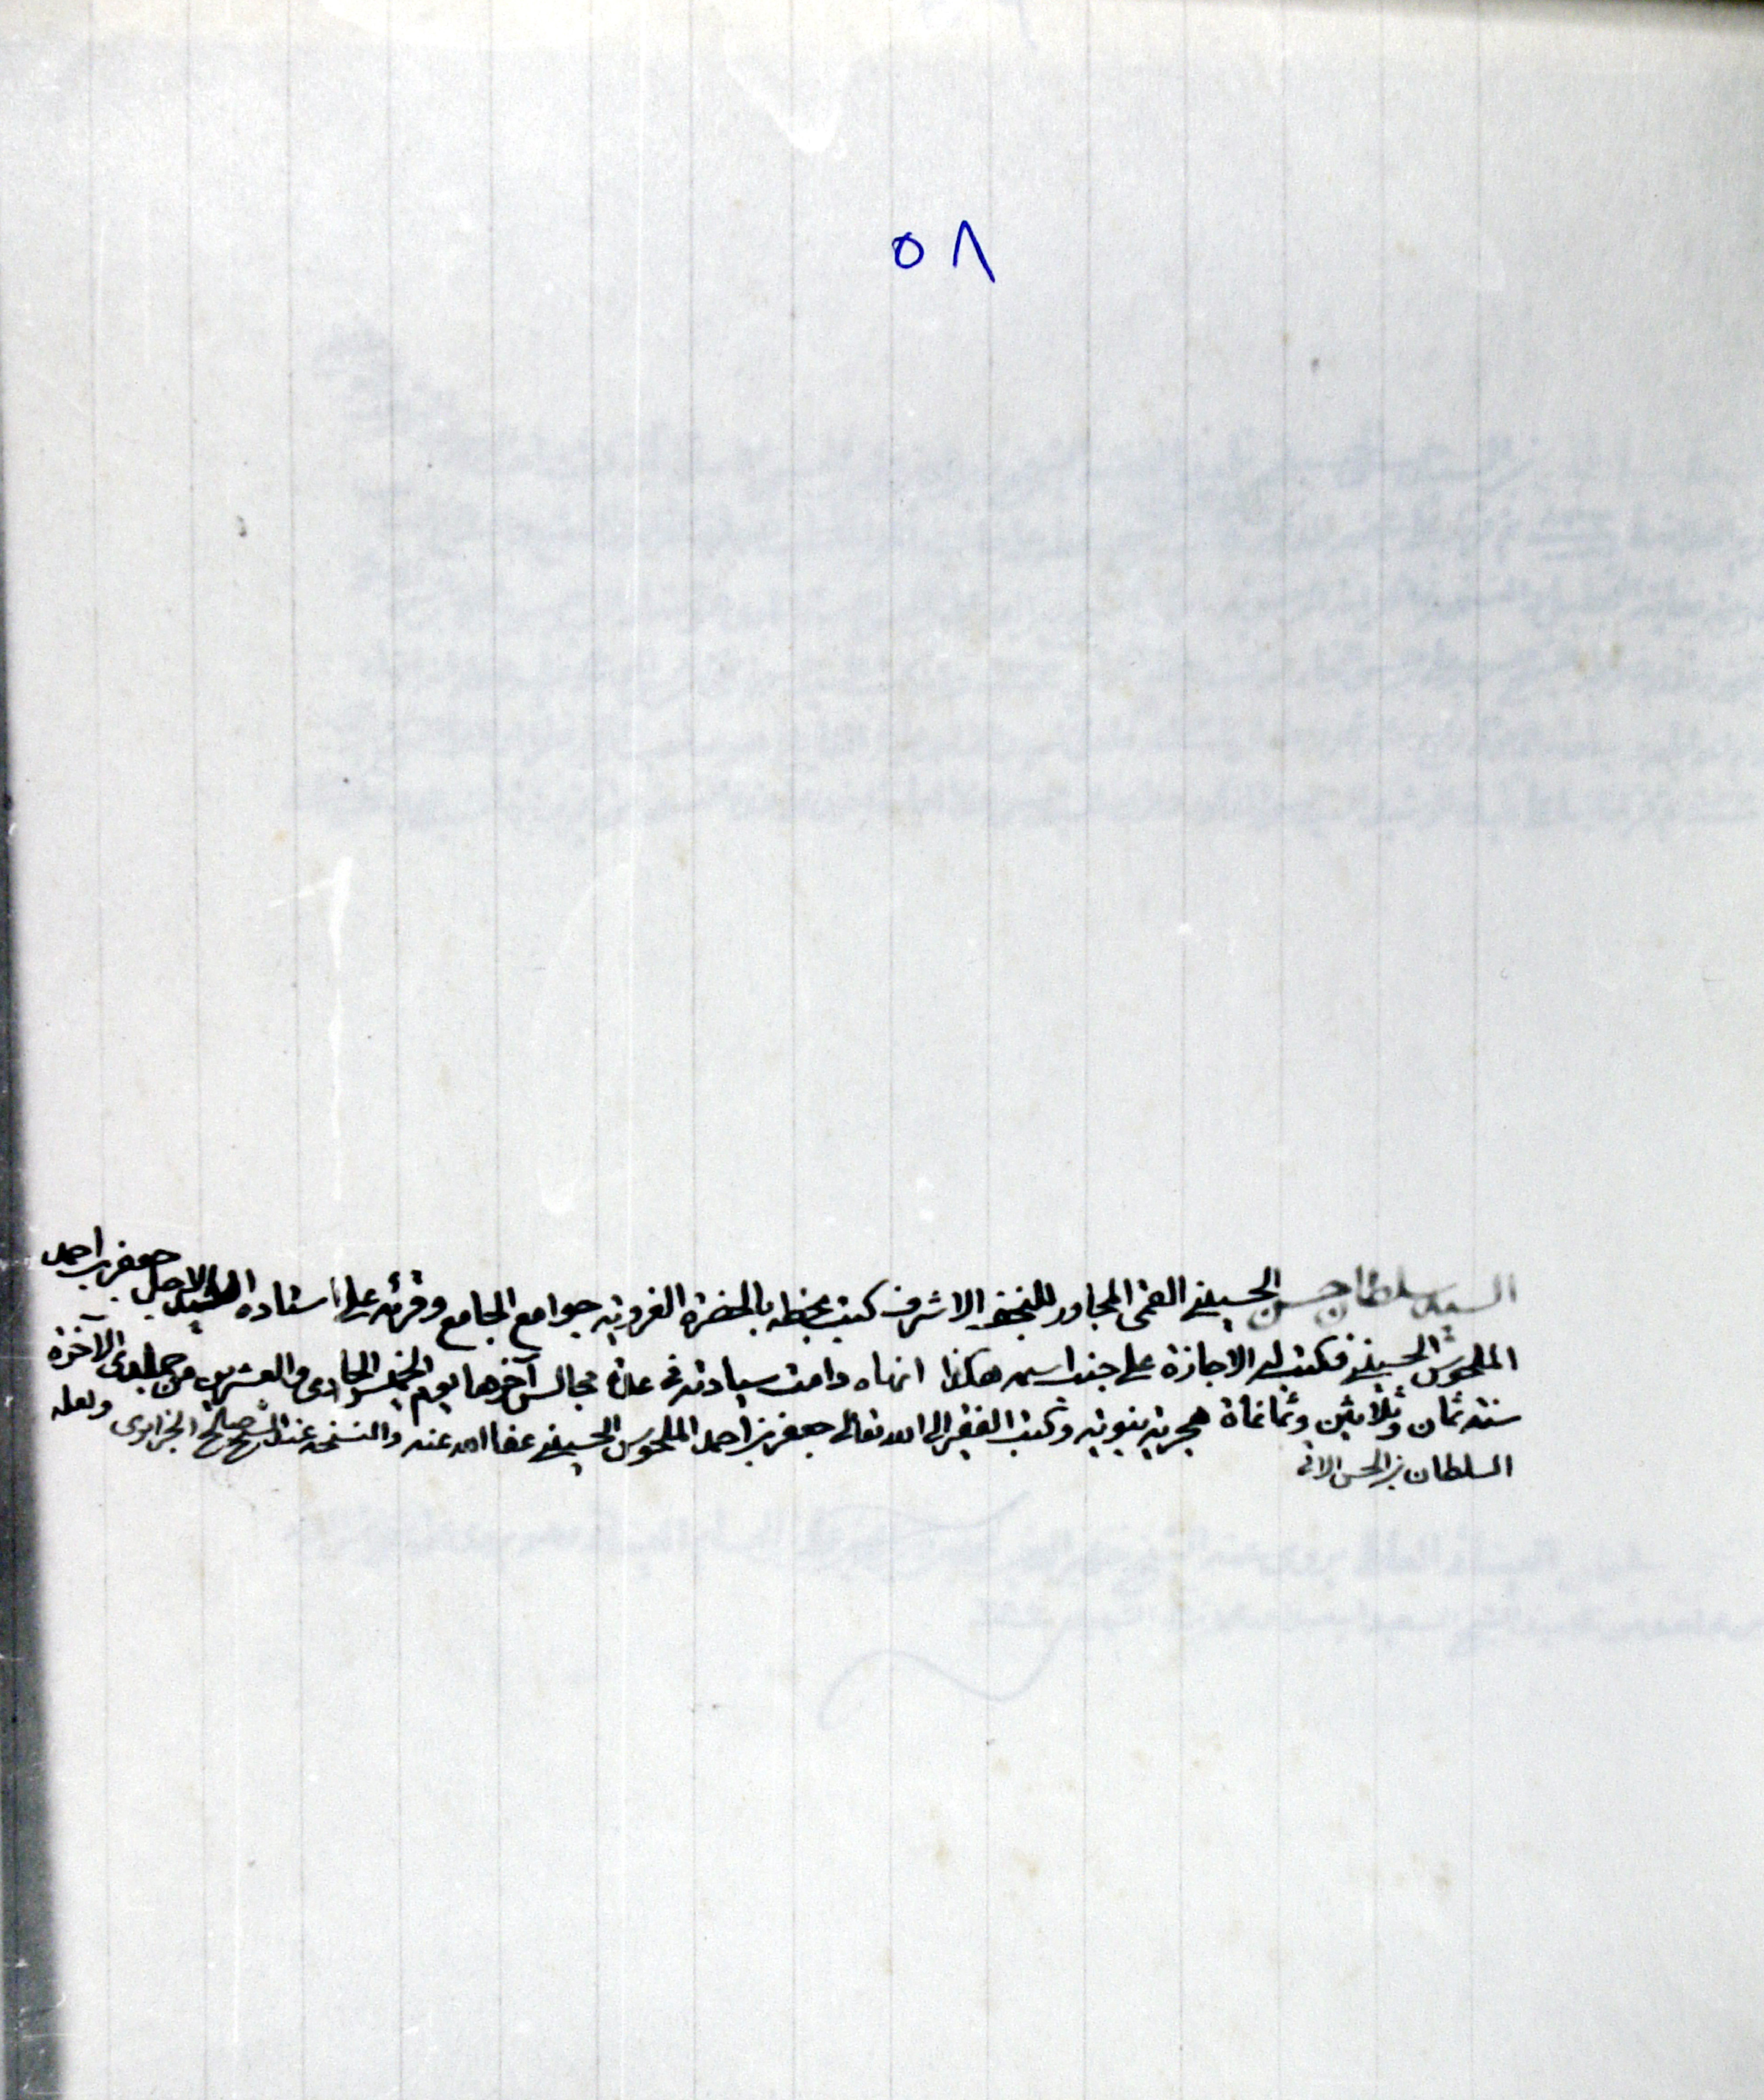 ٥٨
السيد سلطان حسن الحسيني القمي المجاور للنجف الاشرف كتب بخطه بالحضرة الغروية جوامع الجامع وقرئه على استاده السيد الاجل جعفر بن احمد
الملحوس الحسيني فكتب له الاجازة على جنب اسمه هكذا انهاه دامت سيادته في عدة مجالس آخرها يوم الخميس الحادي والعشرين من جمادى الآخرة
سنة ثمان وثلاثين وثمانمأة هجرية نبوية وكتب الفقير الى الله تعالى جعفر بن احمد الملحوس الحسيني عفا الله عنه والنسخة عند الشيخ صالح الجزايرى ولعله
السلطان بن الحسن الاتى